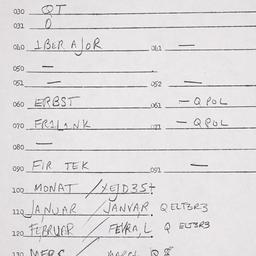 030 QT
031 0
040 1BER AJOR 041 —
050 —
051 — 052 —
060 ERBST 061 — Q POL
070 FR1L1NK 071 — Q POL
080 —
090 FIR TEK 091 —
100 MONAT /
110 JANUAR / JANVAR. Q ELT3R3
120 FEBRUAR / Q ELT3R3
130